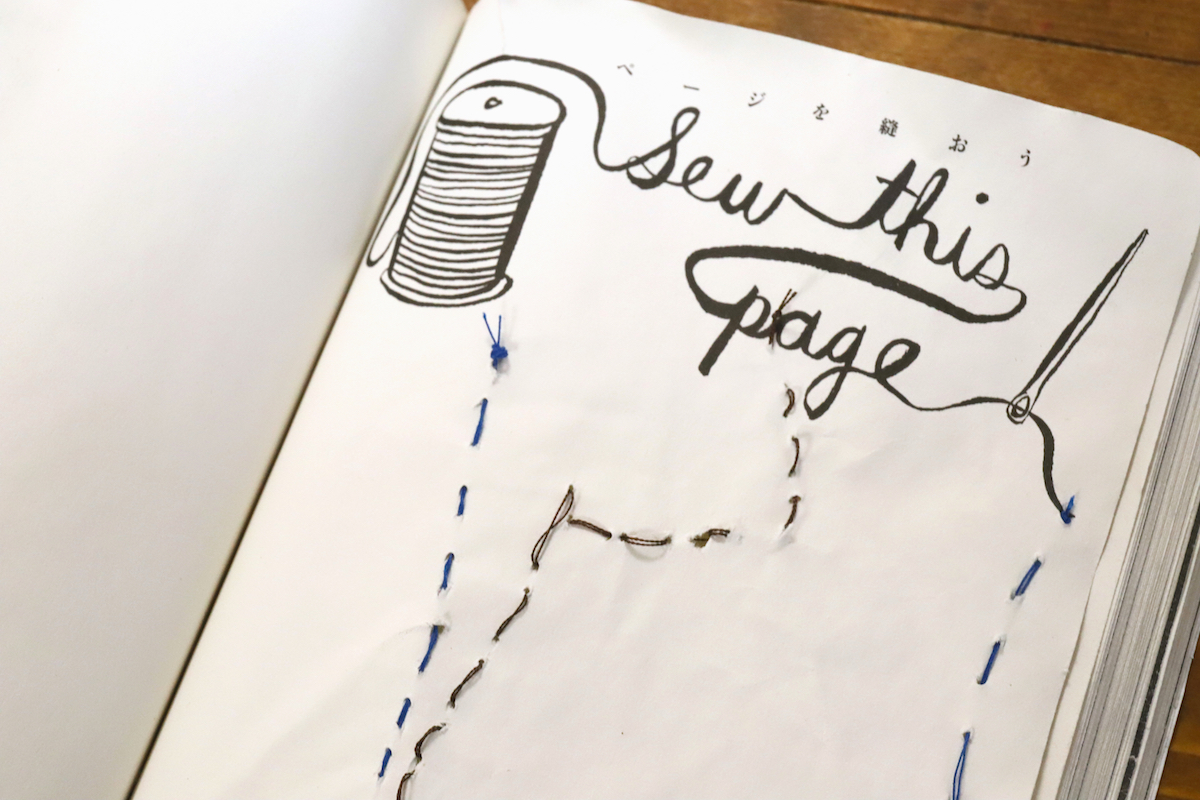 ページを縫おう
Sew this
page